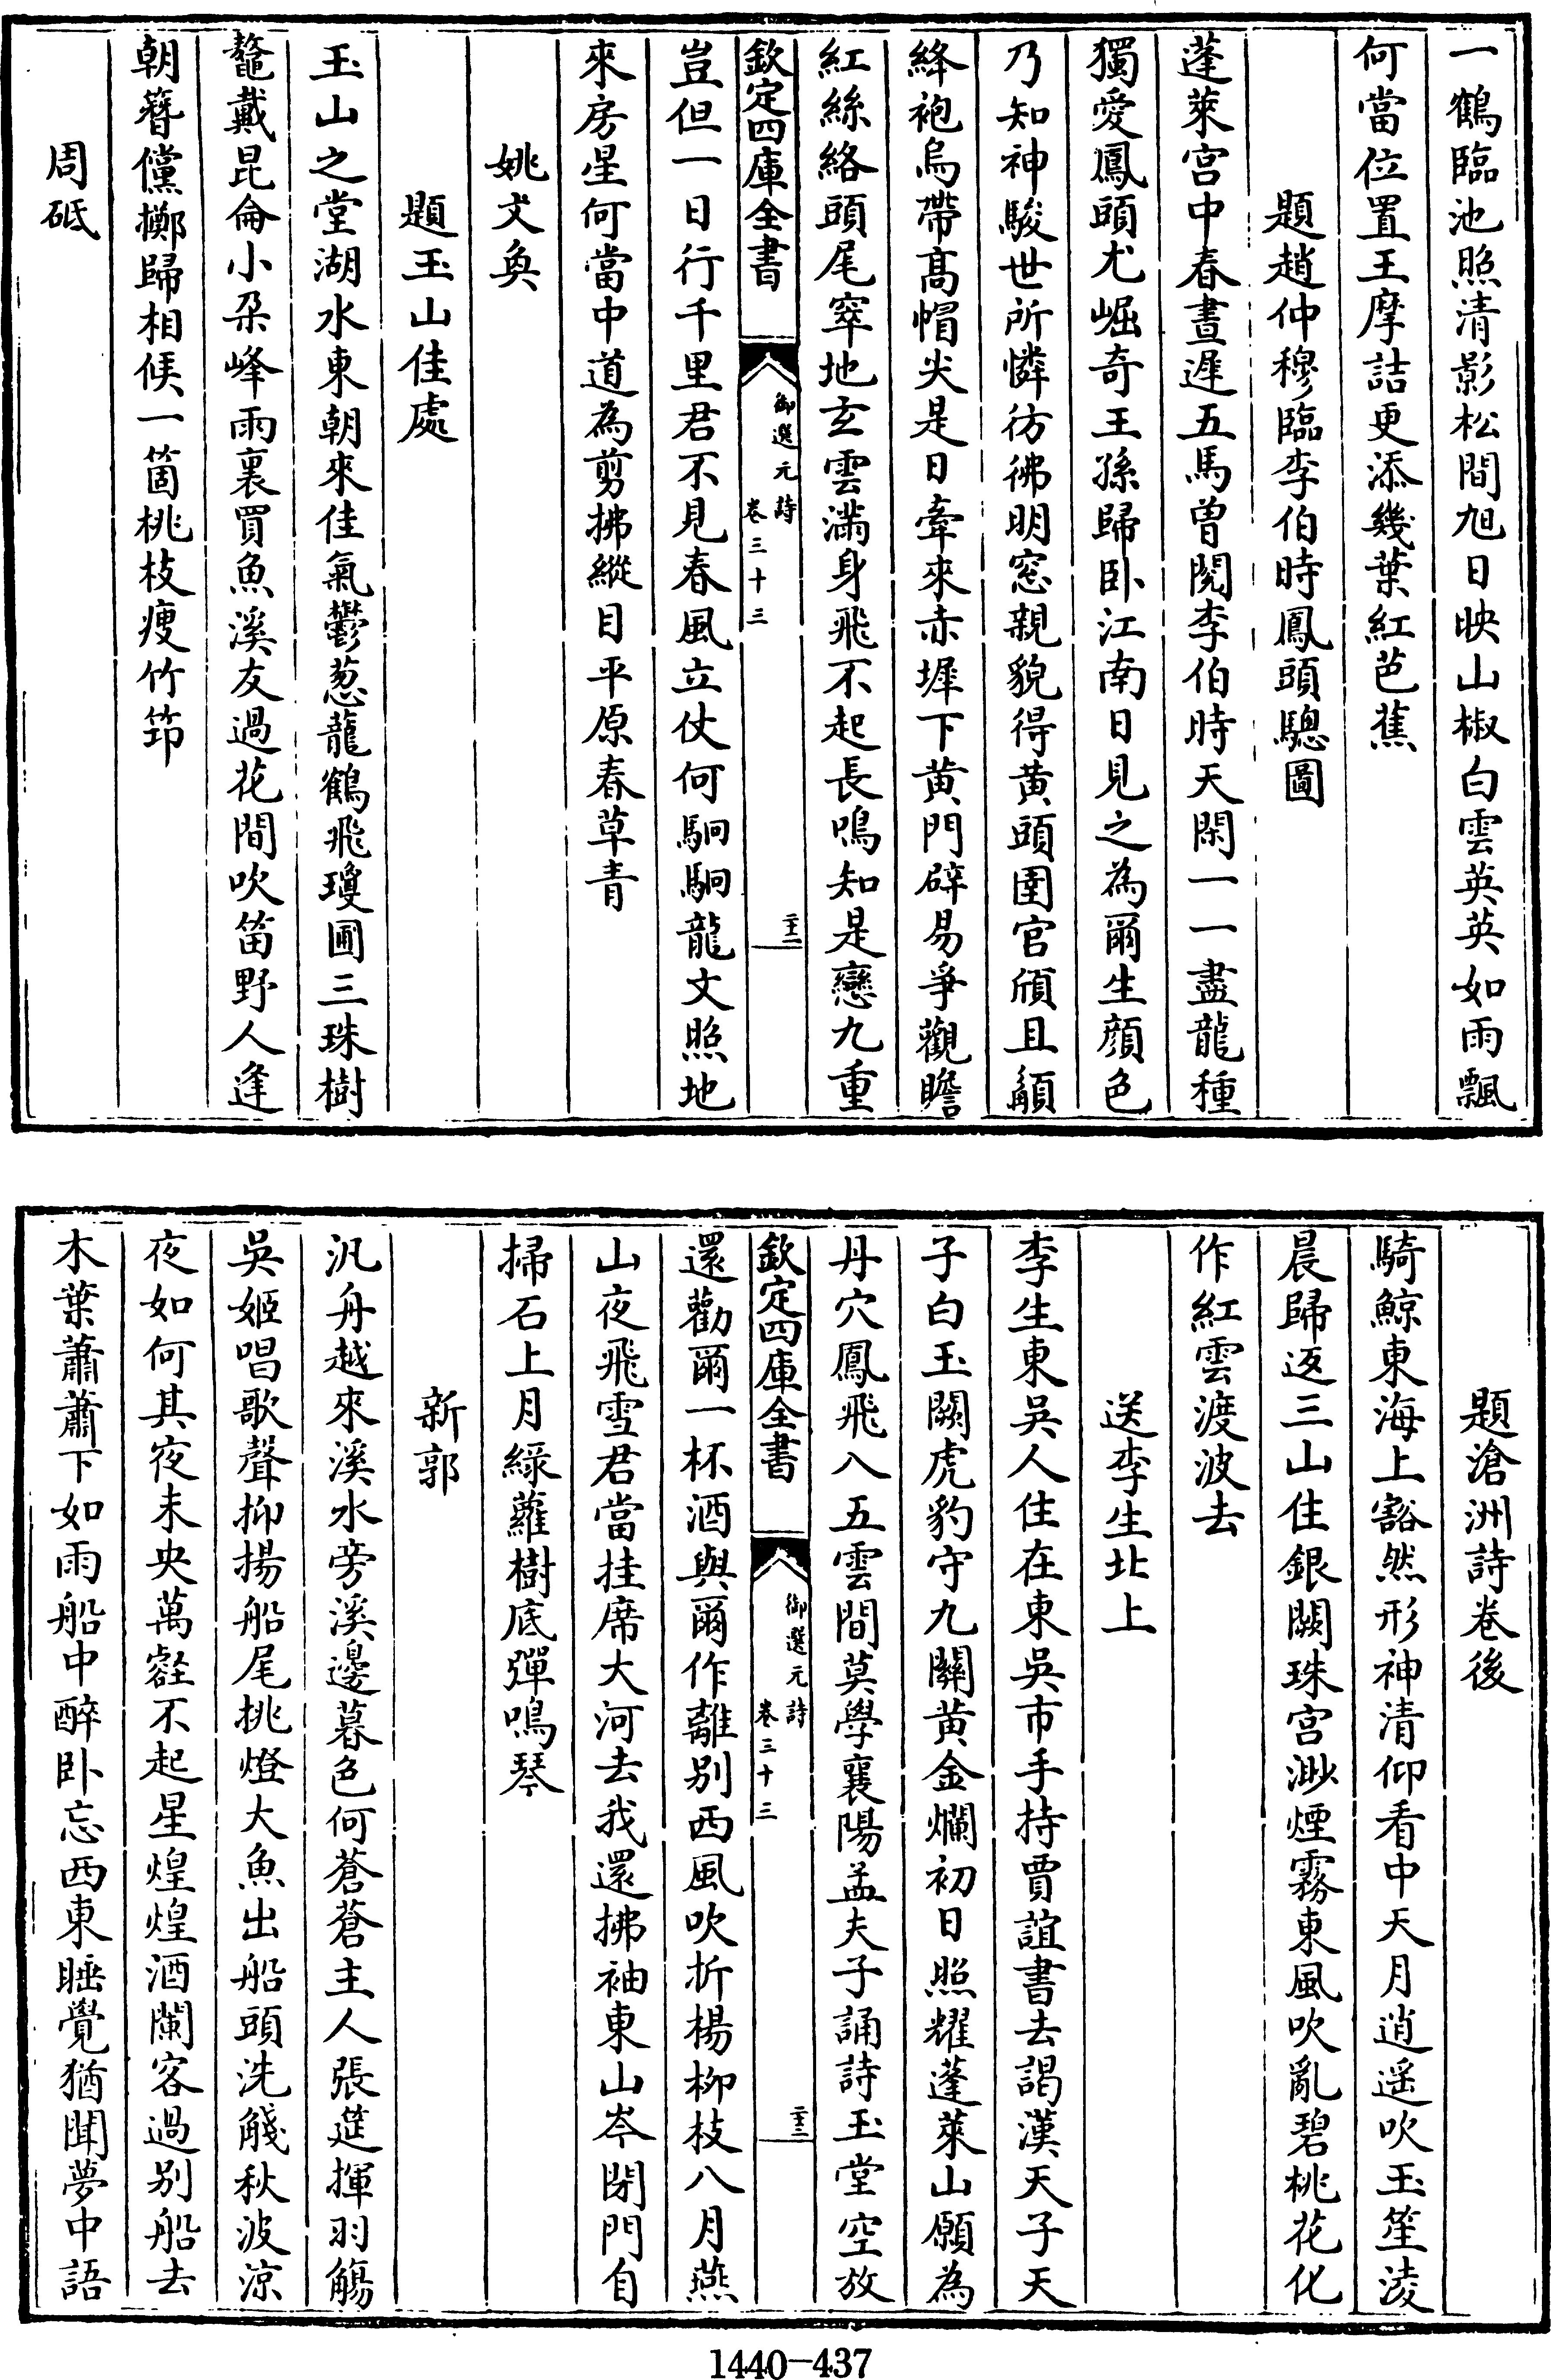 一鶴臨池照清影松間旭日映山椒白雲英英如雨飄
何當位置王摩詰更添幾葉紅芭蕉
題趙仲穆臨李伯時鳳頭驄圖
蓬萊宫中春晝遲五馬曾閱李伯時天閑一一盡龍種
獨愛鳳頭尤崛奇王孫歸卧江南日見之為爾生顔色
乃知神駿世所憐彷彿明窓親貌得黄頭圉官頎且顓
絳袍烏帶髙帽尖是日牽來赤墀下黄門辟易爭觀瞻
紅絲絡頭尾窣地玄雲滿身飛不起長鳴知是戀九重
欽定四庫全書
御選元詩
卷三十三
二十二
豈但一日行千里君不見春風立仗何駉駉龍文照地
來房星何當中道為剪拂縱目平原春草青
姚文奐
題玉山佳處
玉山之堂湖水東朝來佳氣鬱葱蘢鶴飛瓊圃三珠樹
鼇戴昆侖小朶峰雨裏買魚溪友過花間吹笛野人逢
朝簪儻擲歸相候一箇桃枝瘦竹筇
周砥
題滄洲詩卷後
騎鯨東海上豁然形神清仰看中天月逍遥吹玉笙淩
晨歸返三山住銀闕珠宫渺煙霧東風吹亂碧桃花化
作紅雲渡波去
送李生北上
李生東吳人住在東吳市手持賈誼書去謁漢天子天
子白玉闕虎豹守九關黄金爛初日照耀蓬萊山願為
丹穴鳳飛入五雲間莫學襄陽孟夫子誦詩玉堂空放
欽定四庫全書
御選元詩
卷三十三
二十三
還勸爾一杯酒與爾作離别西風吹折楊柳枝八月燕
山夜飛雪君當挂席大河去我還拂袖東山岑閉門自
掃石上月綠蘿樹底彈鳴琴
新郭
汎舟越來溪水旁溪邊暮色何蒼蒼主人張筵揮羽觴
吳姬唱歌聲抑揚船尾挑燈大魚出船頭洗觴秋波涼
夜如何其夜未央萬壑不起星煌煌酒闌客過别船去
木葉蕭蕭下如雨船中醉卧忘西東睡覺猶聞夢中語
1440-437